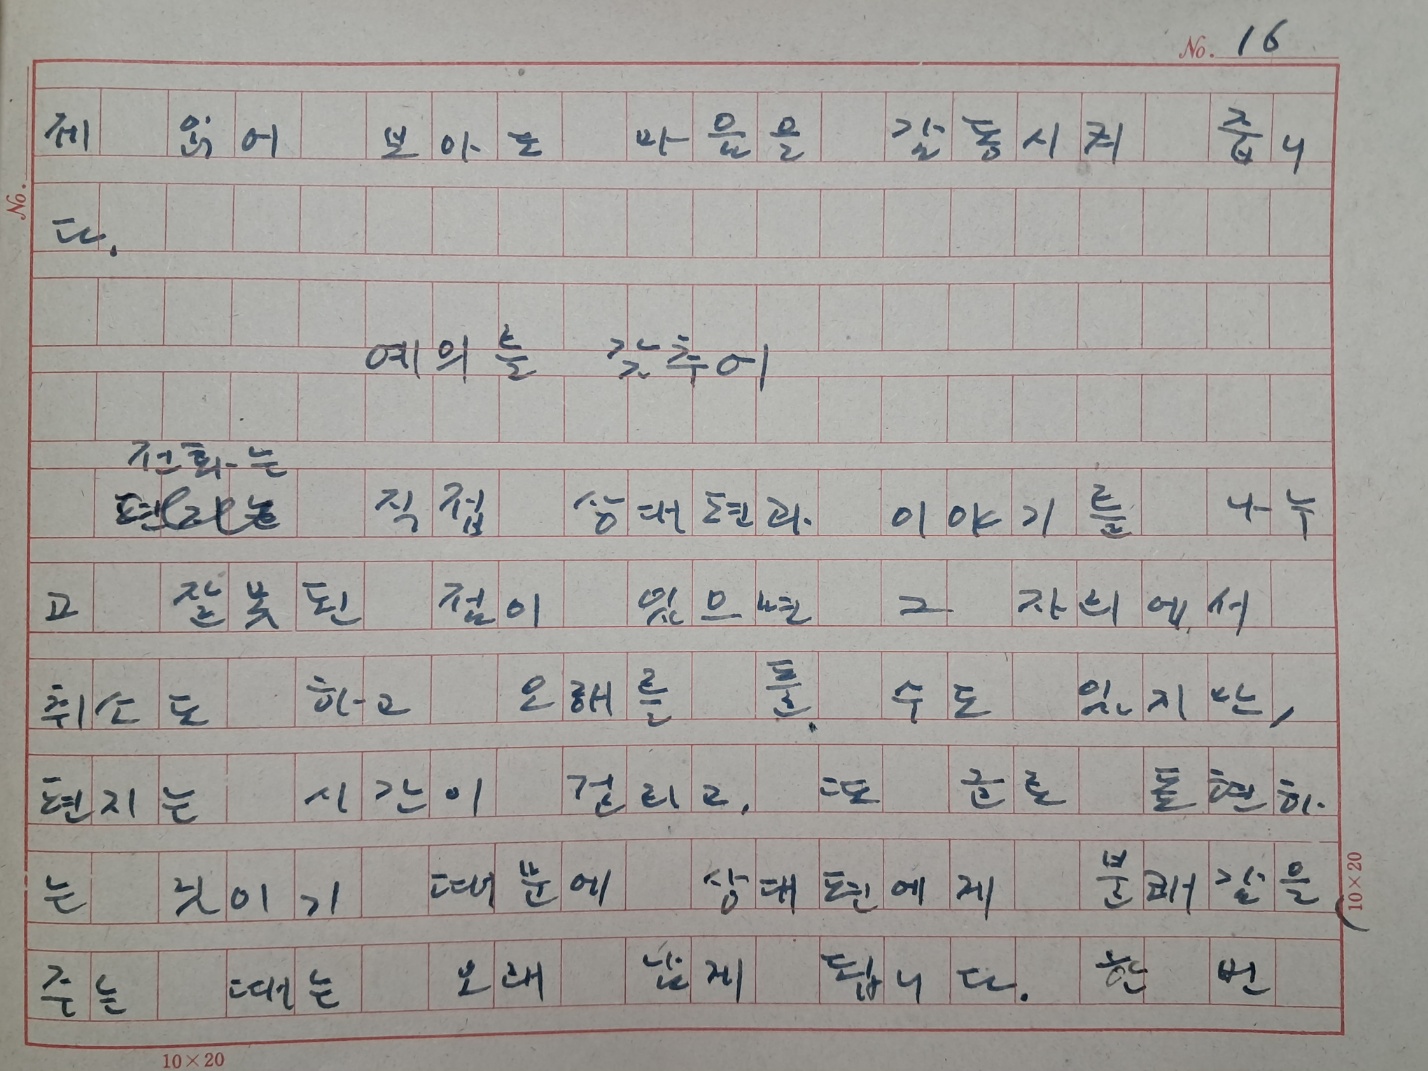 No. 16
제 읽어 보아도 마음을 감동시켜 줍니
다.
예의를 갖추어
전화는
직접 상대편과 이야기를 나누
고 잘못된 점이 있으면 그 자리에서
취소도 하고 오해를 풀 수도 있지만,
편지는 시간이 걸리고, 또 글로 표현하
는 것이기 때문에 상대편에게 불쾌감을
주는 때는 오래 남게 됩니다. 한 번
No.
10×20
10×20